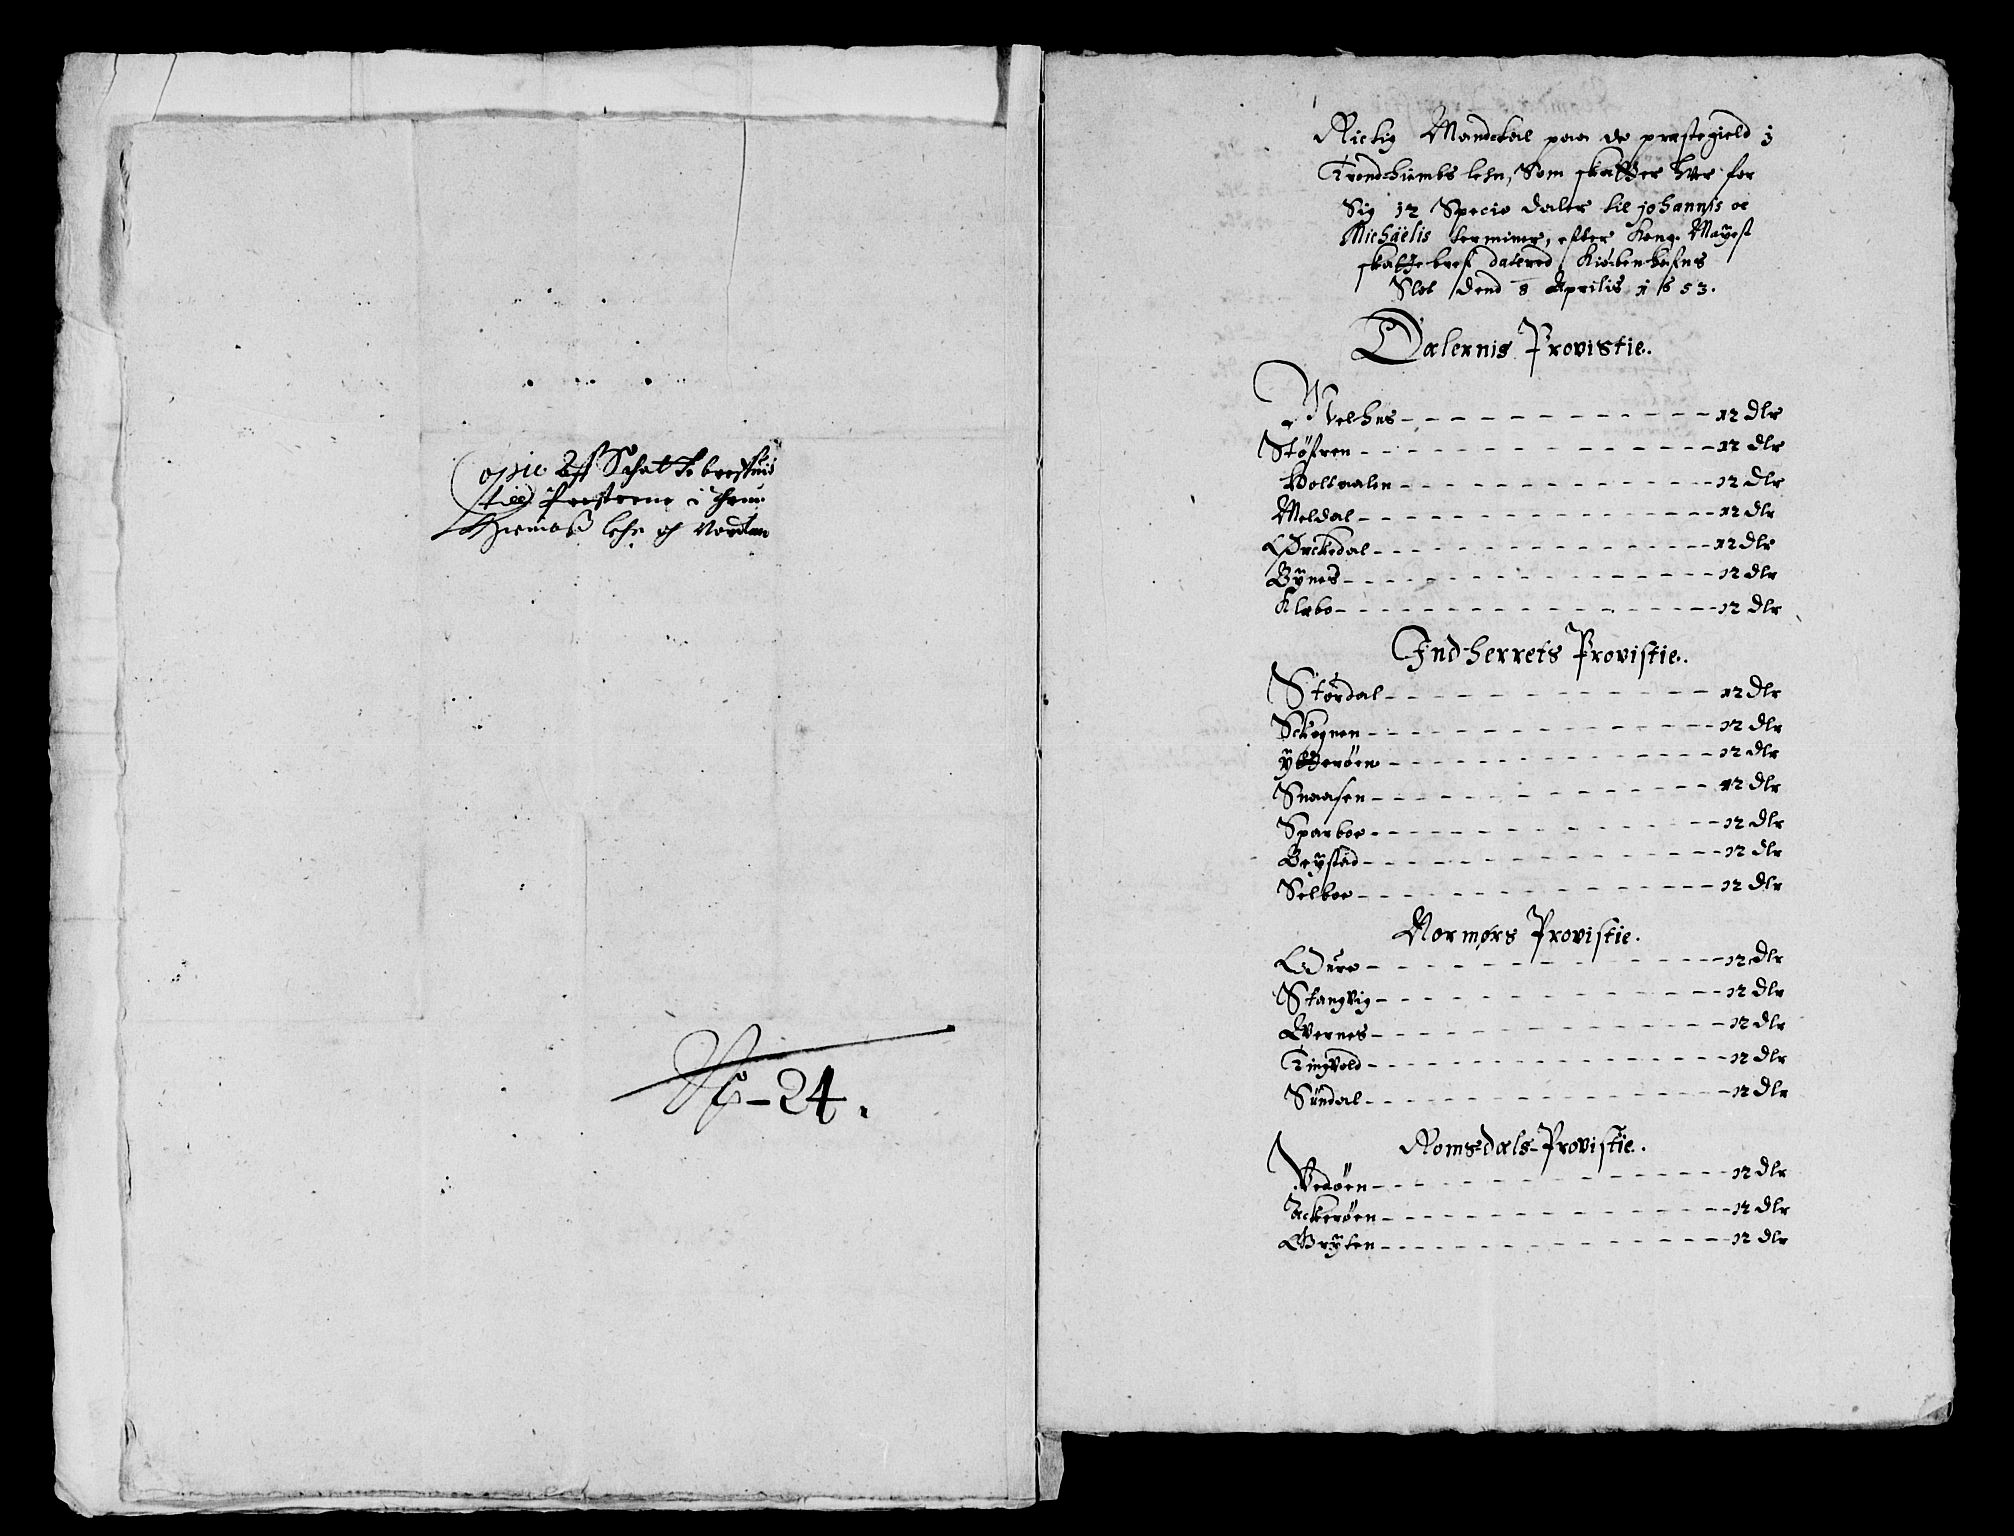 Copie aff Schatte breffuid
till Presterne i Thrun
hiembs lehn och Nordlan
No-24.
Rictig Mandtal paa de præstegield i
Trondhiembs lehn, Som skatter hver for
Sig 12 Specie daler til johannis oc
Michaëlis terminer, efter Kong. Mayest
skatte bref datered Kiøbenhafns
Slot dend 8 Aprilis 1653.
Dalernis Provistie.
Melhus - 12 dlr
Støfren - 12 dlr
Holtaalen - 12 dlr
Meldal - 12 dlr
Ørckedal - 12 dlr
Bÿnes - 12 dlr
Klebo - 12 dlr
Indherrets Provistie.
Størdal - 12 dlr
Sckognen - 12 dlr
ÿtterøen - 12 dlr
Snaasen - 12 dlr
Sparboe - 12 dlr
Beÿstad - 12 dlr
Selboe - 12 dlr
Normørs Provistie.
Edure - 12 dlr
Stangvig - 12 dlr
Qvernes - 12 dlr
Tingvold - 12 dlr
Sundal - 12 dlr
Romsdals-Provistie.
Vedøen - 12 dlr
Ackerøen - 12 dlr
Grÿten - 12 dlr